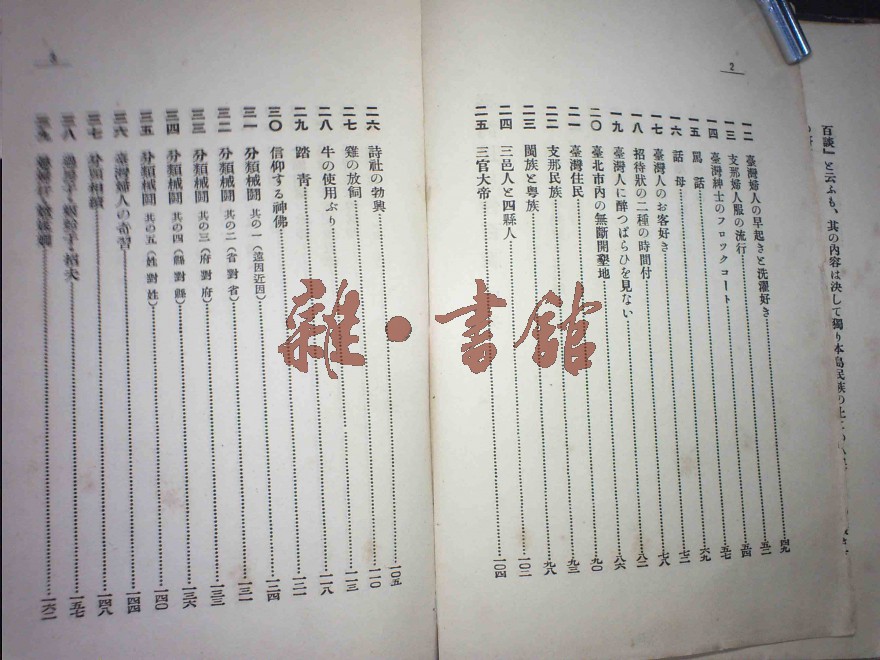 百談』と云ふも、其の內容は決して獨り本島民族の
2
一二 臺灣婦人の早起きと洗濯好き 四九
一三 支那婦人服の流行 五二
一四 臺灣紳士のフロックコート 五四
一五 罵話 五七
一六 話母 六九
一七 臺灣人のお客好き 七二
一八 招待狀の二種の時間付 七八
一九 臺灣人に醉つぱらひを見ない 八二
二〇 臺北市內の無斷開墾地 八六
二一 臺灣住民 九〇
二二 支那民族 九三
二三 閩族と粤族 九八
二四 三邑人と四縣人 一〇二
二五 三官大帝 一〇四
3
二六 詩社の勃興 一〇五
二七 雞の放飼 一一〇
二八 牛の使用ぶり 一一三
二九 踏青 一一八
三〇 信仰する神佛 一二一
三一 分類械鬪 其の一(遠因近因) 一二四
三二 分類械鬪 其の二(省對省) 一三一
三三 分類械鬪 其の三(府對府) 一三三
三四 分類械鬪 其の四(縣對縣) 一三六
三五 分類械鬪 其の五(姓對姓) 一四〇
三六 臺灣婦人の奇習 一四四
三七 分頭相續 一四八
三八 一五七
三九 一六二
雜・書館